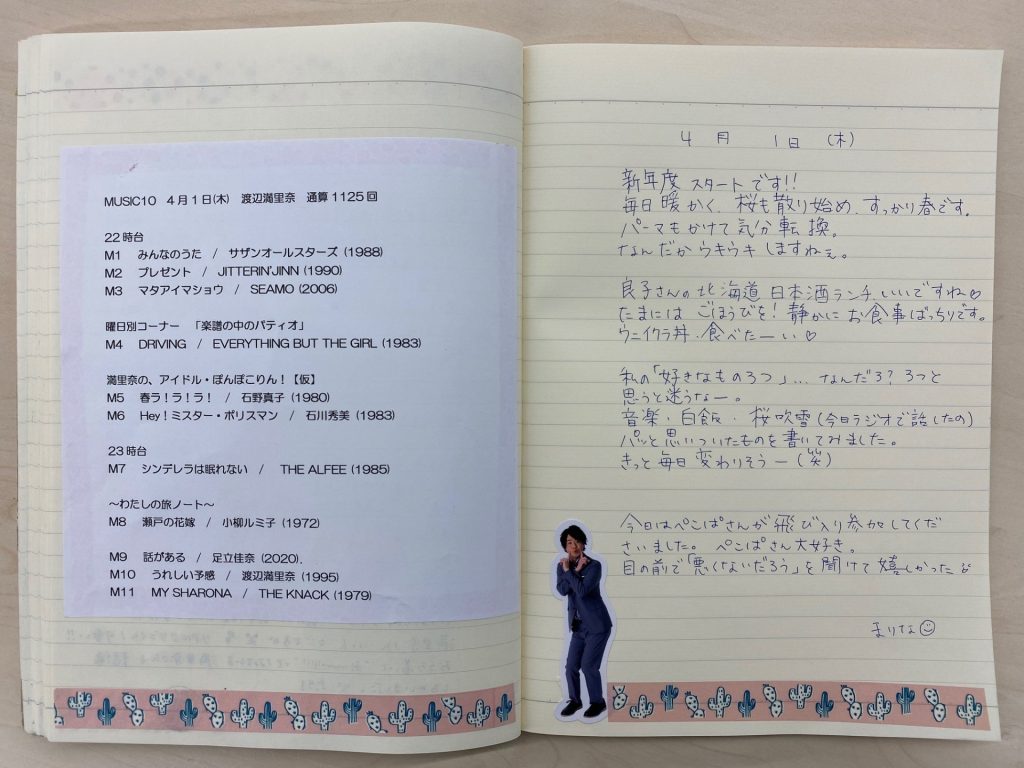 MUSIC10 4月1日(木) 渡辺満里奈 通算1125回
22時台
M1 みんなのうた / サザンオールスターズ (1988)
M2 プレゼント / JITTERIN'JINN (1990)
M3 マタアイマショウ / SEAMO (2006)
曜日別コーナー 「楽譜の中のパティオ」
M4 DRIVING / EVERYTHING BUT THE GIRL (1983)
満里奈の、アイドル・ぽんぽこりん!【仮】
M5 春ラ!ラ!ラ! / 石野真子 (1980)
M6 Hey!ミスター・ポリスマン / 石川秀美 (1983)
23時台
M7 シンデレラは眠れない / THE ALFEE (1985)
~わたしの旅ノート~
M8 瀬戸の花嫁 / 小柳ルミ子 (1972)
M9 話がある / 足立佳奈 (2020).
M10 うれしい予感 / 渡辺満里奈 (1995)
M11 MY SHARONA / THE KNACK (1979)
4月1日(木)
新年度スタートです!!
毎日暖かく、桜も散り始め、すっかり春です。
パーマもかけて気分転換。
なんだかウキウキしますねぇ。
良子さんの北海道日本酒ランチ、いいですね♡
たまにはごほうびを!静かにお食事ばっちりです。
ウニイクラ丼、食べたーい♡
私の「好きなもの3つ」…なんだろ?3つと
思うと迷うなー。
音楽・白飯・桜吹雪(今日ラジオで話したの)
パッと思いついたものを書いてみました。
きっと毎日変わりそうー(笑)
今日はぺこぱさんが飛び入り参加してくだ
さいました。ぺこぱさん大好き。
目の前で「悪くないだろう」を聞けて嬉しかった
まりな☺